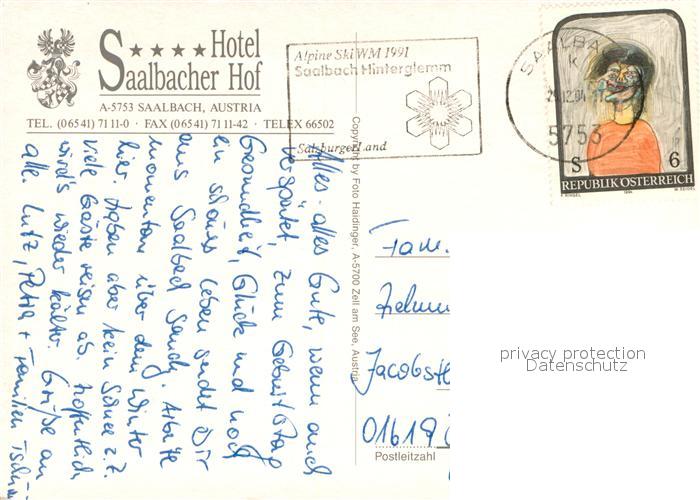 Hotel
S★★★★aalbacher Hof
A-5753 SAALBACH, AUSTRIA
TEL. (06541) 7111-0 · FAX (06541) 7111-42 · TELEX 66502
Alpine Ski WM 1991
Saalbach Hinterglemm
SalzburgerLand
SAALBA
5753
S 6
REPUBLIK ÖSTERREICH
Copyright by Foto Haidinger, A-5700 Zell am See, Austria
Alles alles Gute, wenn auch
verspätet, zum Geburtstag
Gesundheit, Glück und noch
ein schönes Leben sendet Dir
aus Saalbach Sandy. Arbeite
momentan über den Winter
hier. Haben aber kein Schnee z.Z.
viele Gäste reisen ab, hoffentlich
wird's wieder kälter. Grüße an
alle. Lutz, Petra + Familien
Fam.
Jacobst
01619
Postleitzahl
privacy protection
Datenschutz